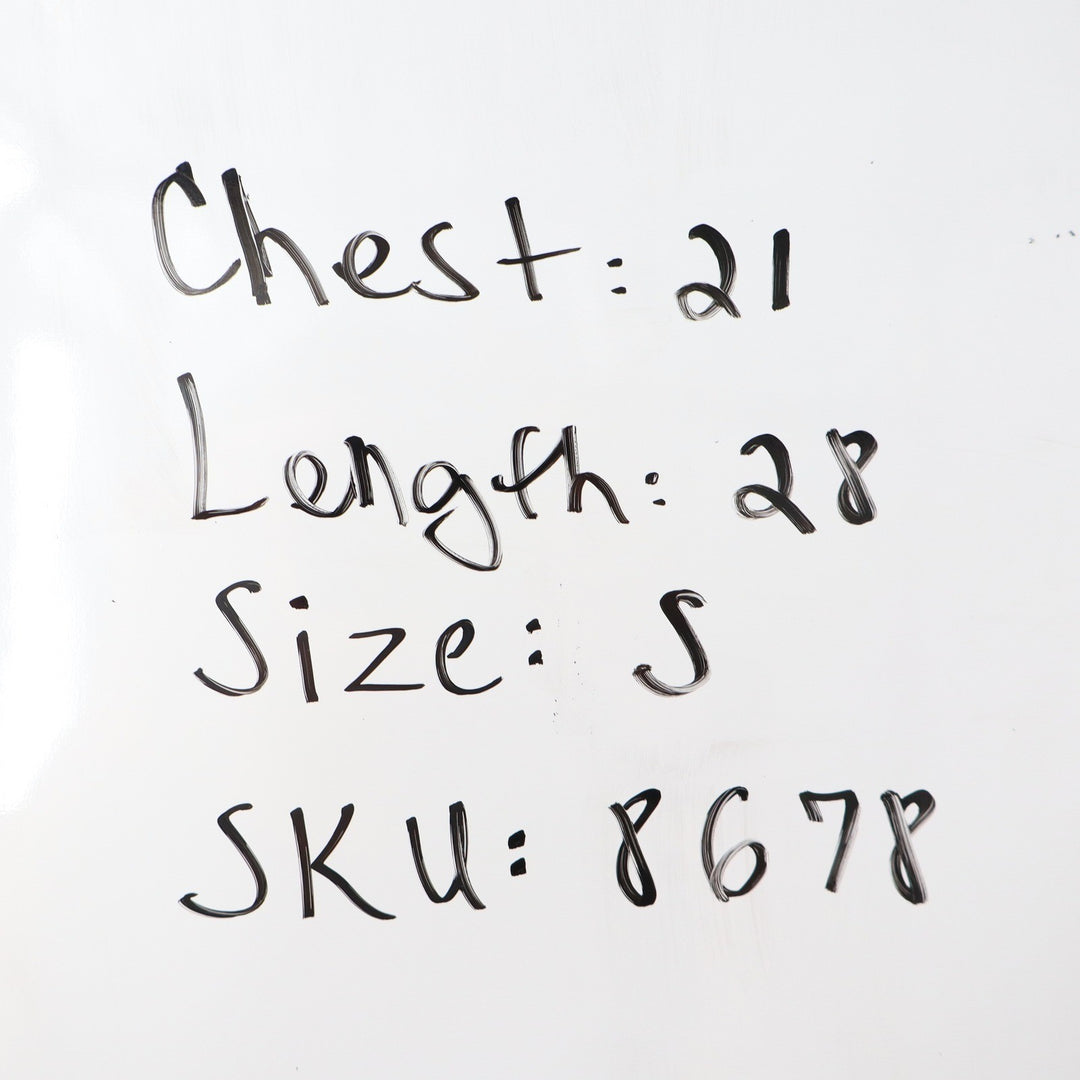 Chest: 21
Length: 28
Size: S
SKU: 8678